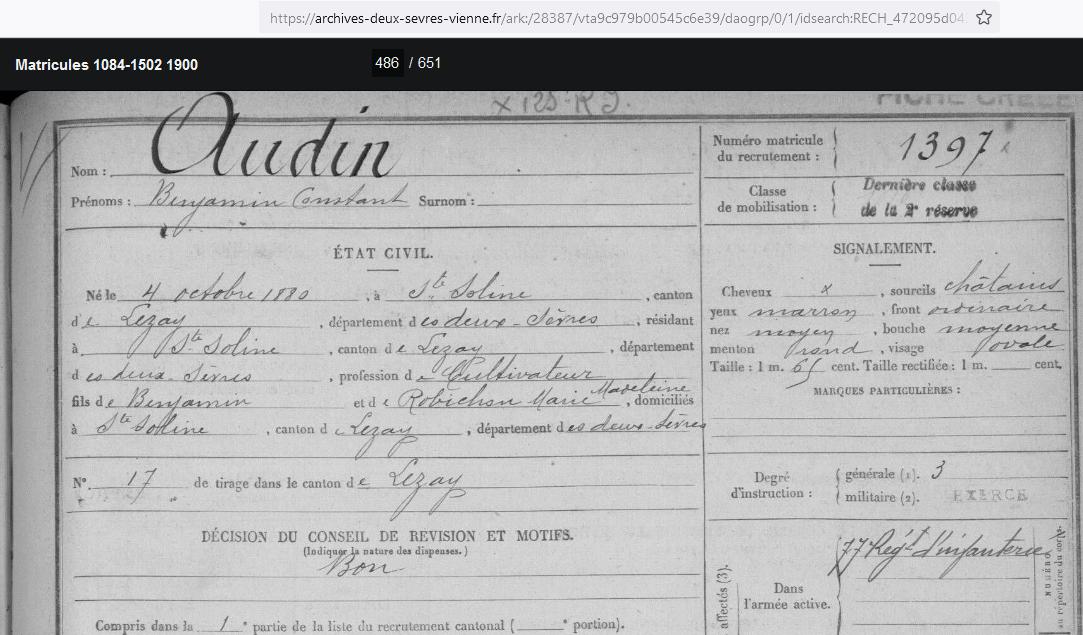 https://archives-deux-sevres-vienne.fr/ark:/28387/vta9c979b00545c6e39/daogrp/0/1/idsearch:RECH_472095d04
Matricules 1084-1502 1900
486 / 651
x 125 R I.
Audin
Nom :
Prénoms : Benjamin Constant Surnom :
Numéro matricule
du recrutement : 1397
Classe
de mobilisation :
Dernière classe
de la 2e réserve
ÉTAT CIVIL.
Né le 4 octobre 1880, à Ste Soline, canton
de Lezay, département des deux-Sèvres, résidant
à Ste Soline, canton de Lezay, département
des deux-Sèvres, profession de Cultivateur
fils de Benjamin et de Robichon Marie Madeleine, domiciliés
à Ste Soline, canton de Lezay, département des deux-Sèvres
N° 17 de tirage dans le canton de Lezay
DÉCISION DU CONSEIL DE REVISION ET MOTIFS.
(Indiquer la nature des dispenses.)
Bon
Compris dans la 1e partie de la liste du recrutement cantonal (e portion).
SIGNALEMENT.
Cheveux x, sourcils châtains
yeux marron, front ordinaire
nez moyen, bouche moyenne
menton rond, visage ovale
Taille : 1 m. 65 cent. Taille rectifiée : 1 m. cent.
MARQUES PARTICULIÈRES :
Degré
d'instruction :
générale (1). 3
militaire (2). EXERCÉ
77 Régt d'infanterie
Dans
l'armée active.
affectés (3).
NUMÉRO
au répertoire du corps.